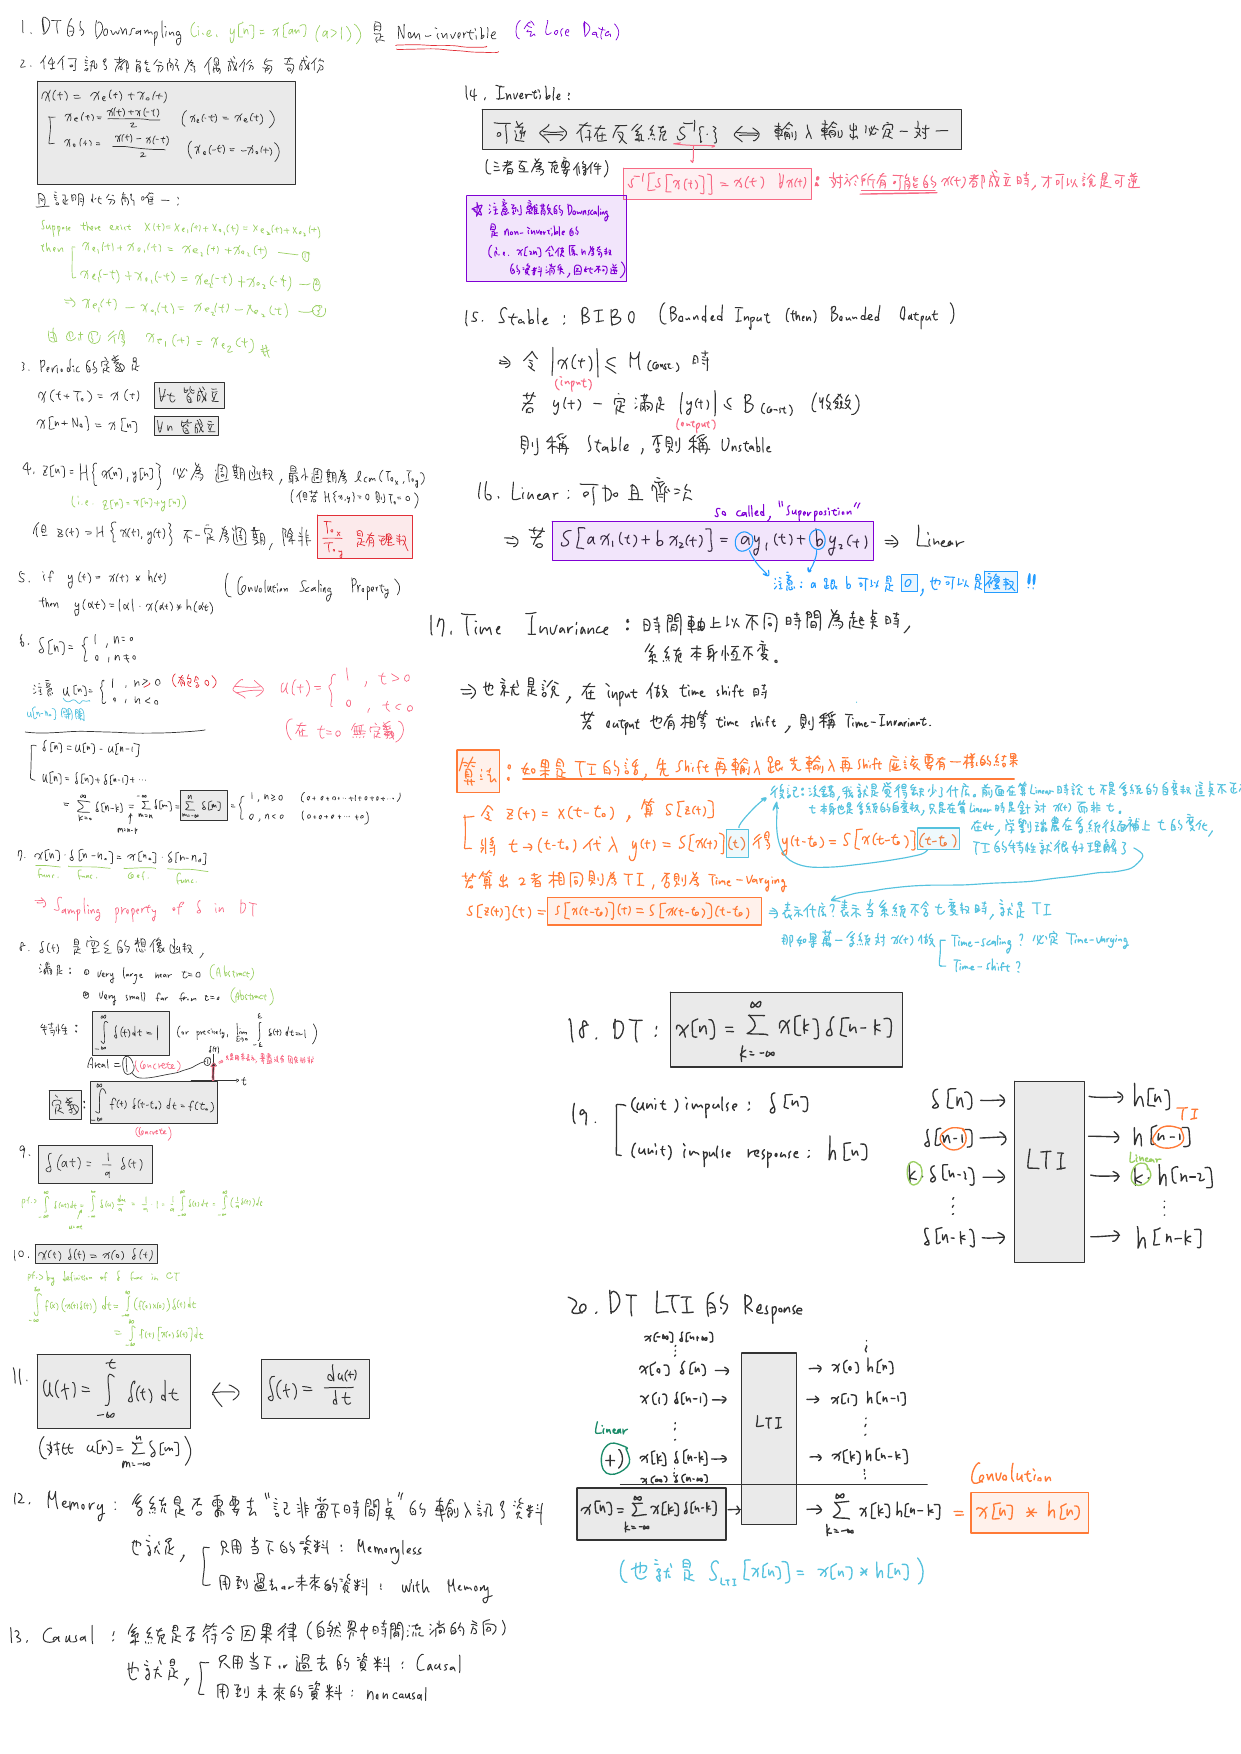 1. DT的 Downsampling (i.e. y[n] = x[an] (a>1)) 是 Non-invertible (会 Lose Data)
2. 任何訊号都能分解為偶成份与奇成份
x(t) = xe(t) + xo(t)
xe(t) = x(t)+x(-t) / 2 (xe(-t) = xe(t))
xo(t) = x(t)-x(-t) / 2 (xo(-t) = -xo(t))
且証明此分解唯一:
Suppose there exist x(t) = xe1(t) + xo1(t) = xe2(t) + xo2(t)
then xe1(t) + xo1(t) = xe2(t) + xo2(t) — ①
xe1(-t) + xo1(-t) = xe2(-t) + xo2(-t) — ②
⇒ xe1(t) - xo1(t) = xe2(t) - xo2(t) — ②
由 ②+① 得 xe1(t) = xe2(t)
3. Periodic的定義是
x(t+To) = x(t) ∀t 皆成立
x[n+No] = x[n] ∀n 皆成立
4. z[n] = H{x[n], y[n]} 必為週期函数, 最小週期為 lcm(Tox, Toy)
(i.e. z[n] = x[n]+y[n]) (但若 H{x,y}=0 則To=0)
但 z(t) = H{x(t), y(t)} 不一定為週期, 除非 Tox / Toy 是有理数
5. if y(t) = x(t) * h(t) (Convolution Scaling Property)
then y(αt) = |α| · x(αt) * h(αt)
6. δ[n] = { 1, n=0
0, n≠0
注意 u[n] = { 1, n≥0 (有包含0) ⟺ u(t) = { 1, t>0
0, n<0 0, t<0
u[n-no] 開關 (在 t=0 無定義)
δ[n] = u[n] - u[n-1]
u[n] = δ[n] + δ[n-1] + ...
= ∞Σk=0 δ[n-k] = -∞Σm=n δ[m] = nΣm=-∞ δ[m] = { 1, n≥0 (0+0+...+1+0+0+...)
m=n-k 0, n<0 (0+0+0+...+0)
7. x[n] · δ[n-no] = x[no] · δ[n-no]
func. func. coef. func.
⇒ Sampling property of δ in DT
8. δ(t) 是定義的想像函数,
滿足: ① very large near t=0 (Abstract)
② very small far from t=0 (Abstract)
特性: ∫∞-∞ δ(t)dt = 1 (or precisely, lim ε→0 ∫ε-ε δ(t)dt=1)
Area = 1 (Concrete) δ(t)
t
定義: ∫∞-∞ f(t) δ(t-to) dt = f(to)
(Concrete)
9. δ(at) = 1/a δ(t)
pf:> ∫∞-∞ δ(at)dt = ∫∞-∞ δ(u) du/a = 1/a · 1 = 1/a ∫∞-∞ δ(t)dt = ∫∞-∞ (1/a δ(t))dt
u=at
10. x(t) δ(t) = x(0) δ(t)
pf:> by definition of δ func in CT
∫∞-∞ f(t)(x(t)δ(t)) dt = ∫∞-∞ (f(0)x(0)) δ(t)dt
= ∫∞-∞ f(t)[x(0)δ(t)]dt
11. u(t) = ∫t-∞ δ(t) dt ⟺ δ(t) = du(t)/dt
(對比 u[n] = nΣm=-∞ δ[m])
12. Memory: 系統是否需要去"記非當下時間点"的輸入訊号資料
也就是, 只用當下的資料: Memoryless
用到過去or未來的資料: With Memory
13. Causal: 系統是否符合因果律(自然界中時間流淌的方向)
也就是, 只用當下or過去的資料: Causal
用到未來的資料: noncausal
14. Invertible:
可逆 ⟺ 存在反系統 S⁻¹{·} ⟺ 輸入輸出必定一對一
(三者互為充要條件) S⁻¹[S[x(t)]] = x(t) ∀x(t) : 對於所有可能的x(t)都成立時, 才可以說是可逆
☆ 注意到離散的 Downscaling
是 non-invertible 的
(i.e. x[2n] 会使原n為奇数
的資料消失, 因此不可逆)
15. Stable: BIBO (Bounded Input (then) Bounded Output)
⇒ 令 |x(t)| ≤ M(const) 時
(input)
若 y(t) 一定滿足 |y(t)| ≤ B(const) (收斂)
(output)
則稱 Stable, 否則稱 Unstable
16. Linear: 可加且齊次
so called, "Superposition"
⇒ 若 S[ax1(t) + bx2(t)] = ay1(t) + by2(t) ⇒ Linear
注意: a 與 b 可以是 0, 也可以是複数!!
17. Time Invariance: 時間軸上以不同時間為起点時,
系統本身恆不变。
⇒ 也就是說, 在 input 做 time shift 時
若 output 也有相等 time shift, 則稱 Time-Invariant.
算法: 如果是TI的話, 先Shift再輸入跟先輸入再Shift应該要有一樣的結果
後記: 沒錯, 我就是覺得缺少了什庅。前面在算Linear時說 t 不是系統的自变数這点不正
t 本身也是系統的自变数, 只是在算Linear時是針对 x(t) 而非 t。
令 z(t) = x(t-to), 算 S[z(t)]
在此, 学到端農在系統後面補上 t 的变化,
將 t→(t-to) 代入 y(t) = S[x(t)](t) 得 y(t-to) = S[x(t-to)](t-to)
TI的特性就很好理解了
若算出2者相同則為TI, 否則為 Time-Varying
S[z(t)](t) = S[x(t-to)](t) = S[x(t-to)](t-to) ⇒ 表示什庅? 表示当系統不含 t 变数時, 就是 TI
那如果萬一系統对 x(t) 做 Time-scaling? 必定 Time-varying
Time-shift?
18. DT: x[n] = ∞Σk=-∞ x[k] δ[n-k]
19. (unit) impulse: δ[n]
(unit) impulse response: h[n]
δ[n] → h[n]
TI
δ[n-1] → h[n-1]
LTI
Linear
k·δ[n-1] → k·h[n-2]
⋮ ⋮
δ[n-k] → h[n-k]
20. DT LTI 的 Response
x[-∞] δ[n+∞]
⋮ ⋮
x[0] δ[n] → → x[0] h[n]
x[1] δ[n-1] → → x[1] h[n-1]
LTI
⋮ ⋮
Linear
+) x[k] δ[n-k] → → x[k] h[n-k]
x[∞] δ[n-∞] ⋮
Convolution
x[n] = ∞Σk=-∞ x[k] δ[n-k] → → ∞Σk=-∞ x[k] h[n-k] = x[n] * h[n]
(也就是 SLTI[x[n]] = x[n] * h[n])